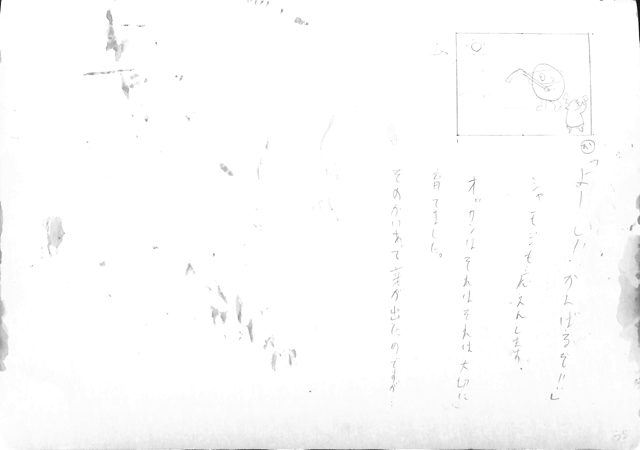 「よーし!!がんばるぞ!!」
シャモジも応えんします。
オッケンはそれはそれは大切に
育てました。
そのかいあって芽が出たのです